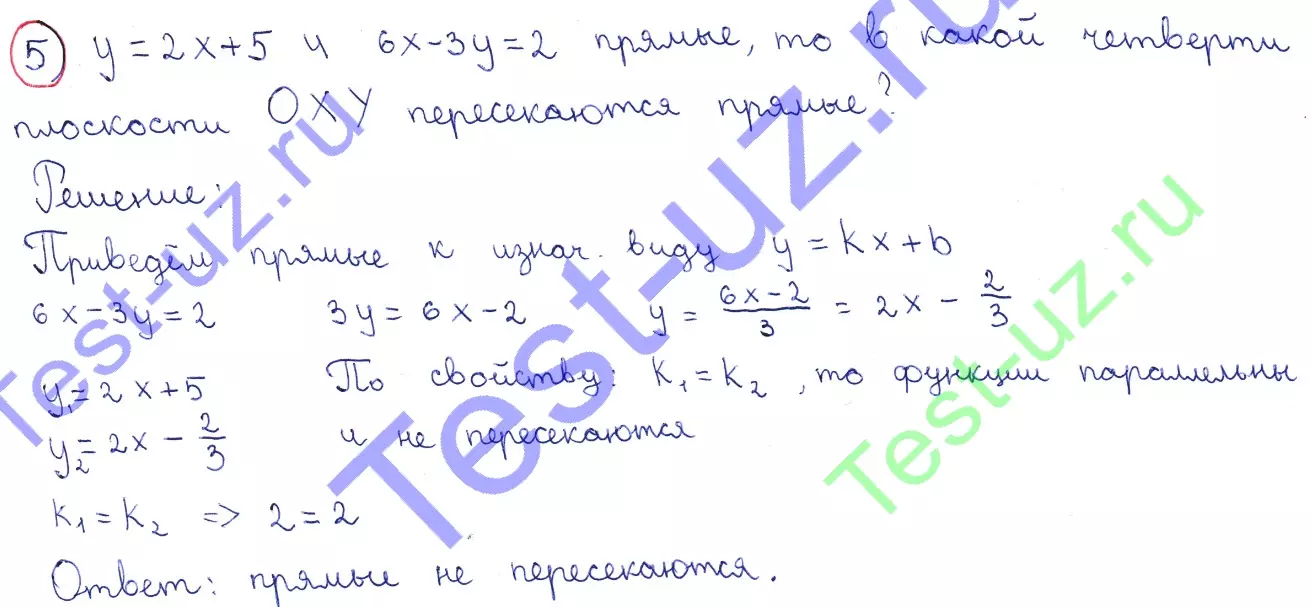 5) y = 2x+5 и 6x-3y=2 прямые, то в какой четверти
плоскости OXY пересекаются прямые?
Решение:
Приведём прямые к изнач. виду y = kx+b
6x-3y=2 3y = 6x-2 y = (6x-2)/3 = 2x - 2/3
y₁=2x+5 По свойству: K₁=K₂, то функции параллельны
y₂=2x - 2/3 и не пересекаются
K₁=K₂ => 2=2
Ответ: прямые не пересекаются.
Test-uz.ru
Test-uz.ru
Test-uz.ru